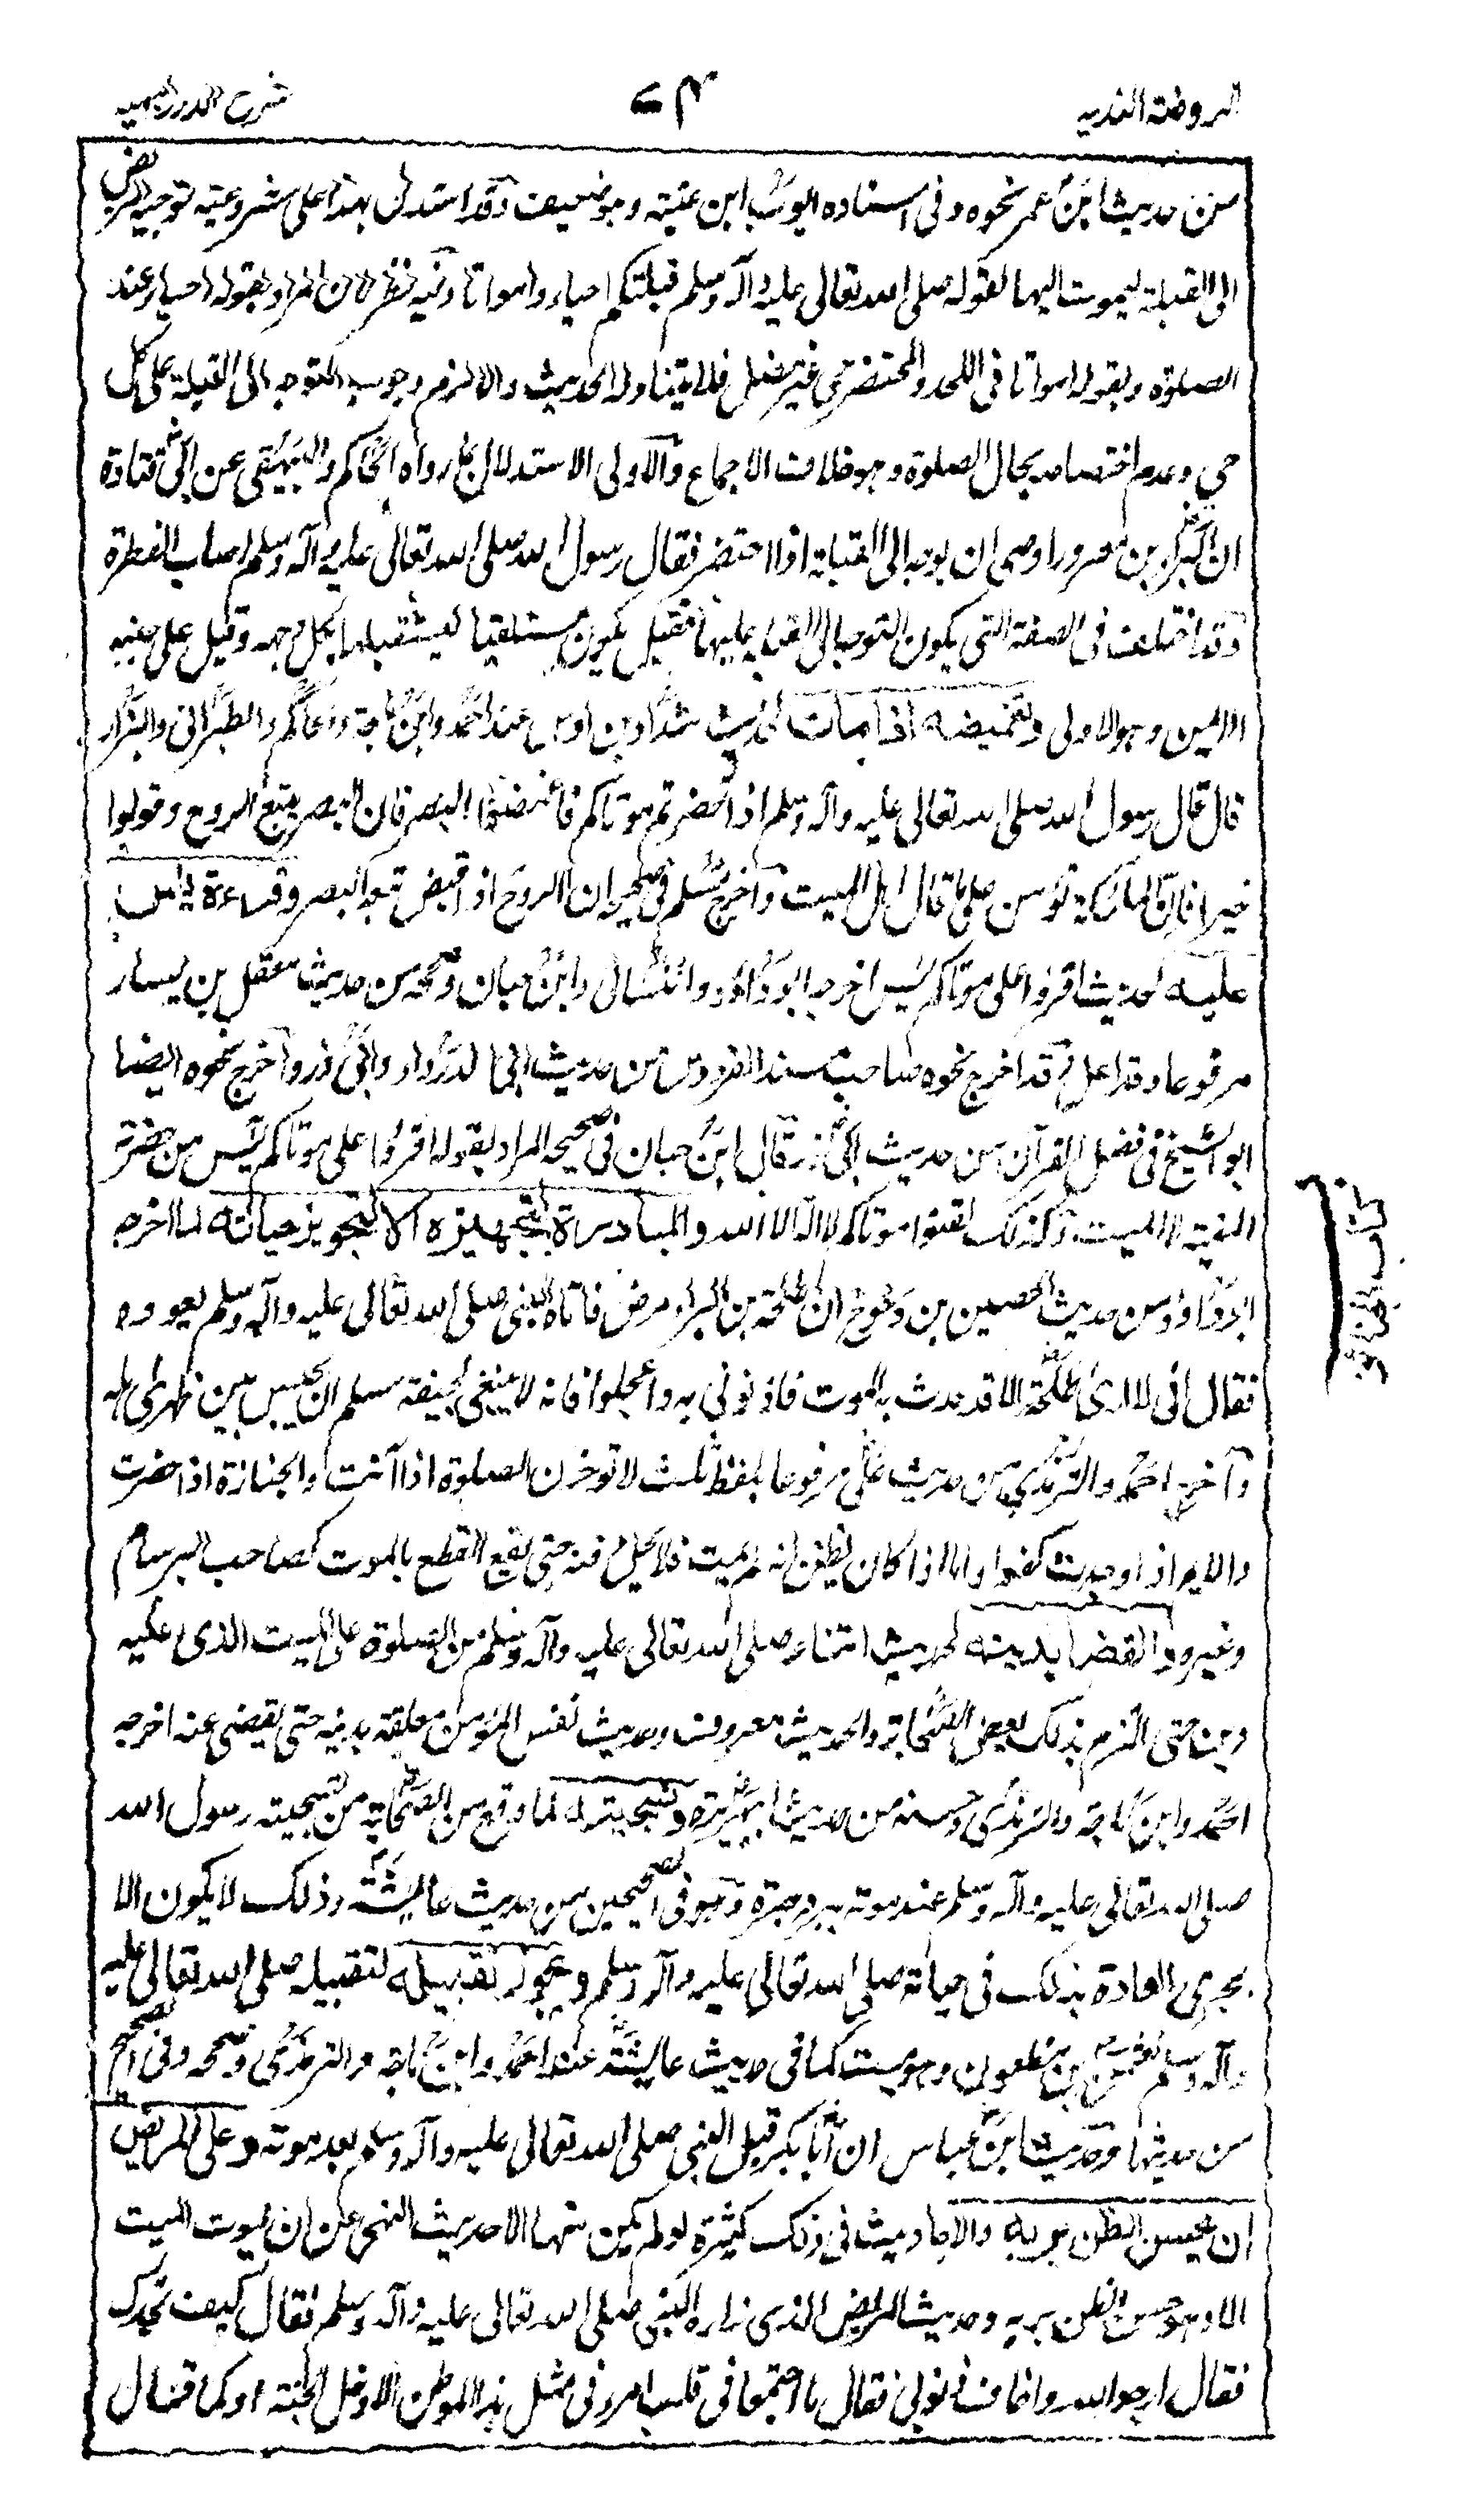 الروضة الندية
شرح الدرر البهية
من حديث ابن عمر نحوه وفى اسناده ايوب ابن عتبة وهو ضعيف وقد استدل بهذا على مشروعية توجيه المريض
الى القبلة ليموت اليها لقوله صلى الله تعالى عليه وآله وسلم قبلتكم احياء وامواتا وفيه نظر لان المراد بقوله احياء عند
الصلوة وبقوله امواتا فى اللحد والمحتضر حى غير مصل فلا يتناوله الحديث والا لزم وجوب التوجه الى القبلة على كل
حى وعدم اختصاصه بحال الصلوة وهو خلاف الاجماع والاولى الاستدلال بما رواه الحاكم والبيهقى عن ابى قتادة
ان البراء بن معرور اوصى ان يوجه الى القبلة اذا احتضر فقال رسول الله صلى الله تعالى عليه وآله وسلم اصاب الفطرة
وقد اختلف فى الصفة التى يكون التوجه الى القبلة عليها فقيل يكون مستلقيا ليستقبلها بكل وجهه وقيل على جنبه
الايمن وهو الاولى وتغميضه اذا مات لحديث شداد بن اوس عند احمد وابن ماجة والحاكم والطبرانى والبزار
قال قال رسول الله صلى الله تعالى عليه وآله وسلم اذا حضرتم موتاكم فاغمضوا البصر فان البصر يتبع الروح وقولوا
خيرا فان الملائكة تؤمن على ما قال اهل الميت واخرج مسلم فى صحيحه ان الروح اذا قبض تبعه البصر وقراءة يس
عليه لحديث اقرؤا على موتاكم يس اخرجه ابو داؤد والنسائى وابن حبان وصححه من حديث معقل بن يسار
مرفوعا وقد اعل وقد اخرج نحوه صاحب مسند الفردوس من حديث ابى الدرداء وابى ذر واخرج نحوه ايضا
ابو الشيخ فى فضل القرآن من حديث ابى ذر قال ابن حبان فى صحيحه المراد بقوله اقرؤا على موتاكم يس من حضرته
المنية لا الميت وكذلك لقنوا موتاكم لا اله الا الله والمبادرة بتجهيزه الا لتجويز حياته لما اخرجه
ابو داؤد من حديث الحصين بن وحوح ان طلحة بن البراء مرض فاتاه النبى صلى الله تعالى عليه وآله وسلم يعوده
فقال انى لا ارى طلحة الا قد حدث به الموت فاذنونى به وعجلوا فانه لا ينبغى لجيفة مسلم ان يحبس بين ظهرى اهله
واخرج احمد والترمذى من حديث على مرفوعا بلفظ ثلث لا تؤخرن الصلوة اذا آنت والجنازة اذا حضرت
والايم اذا وجدت كفوا واما اذا كان يظن انه لم يمت فلا يحل دفنه حتى يقع القطع بالموت كصاحب البرسام
وغيره والقضاء لدينه لحديث امتناعه صلى الله تعالى عليه وآله وسلم من الصلوة على الميت الذى عليه
دين حتى التزم بذلك بعض الصحابة والحديث معروف وحديث نفس المؤمن معلقة بدينه حتى يقضى عنه اخرجه
احمد وابن ماجة والترمذى وحسنه من حديث ابى هريرة وتسجيته لما وقع من الصحابة من تسجية رسول الله
صلى الله تعالى عليه وآله وسلم عند موته ببرد حبرة وهو فى الصحيحين من حديث عائشة وذلك لا يكون الا
بجرى العادة بذلك فى حياته صلى الله تعالى عليه وآله وسلم ويجوز تقبيله لتقبيله صلى الله تعالى عليه
وآله وسلم لعثمن بن مظعون وهو ميت كما فى حديث عائشة عند احمد وابن ماجة والترمذى وصححه وفى الصحيح
من حديثها وحديث ابن عباس ان ابا بكر قبل النبى صلى الله تعالى عليه وآله وسلم بعد موته وعلى المريض
ان يحسن الظن بربه والاحاديث فى ذلك كثيرة لو لم يكن منها الا حديث النهى عن ان يموت الميت
الا وهو حسن الظن بربه وحديث المريض الذى زاره النبى صلى الله تعالى عليه وآله وسلم فقال كيف تجدك
فقال ارجو الله واخاف ذنوبى فقال ما اجتمعا فى قلب امرء فى مثل هذا الموطن الا دخل الجنة او كما قال